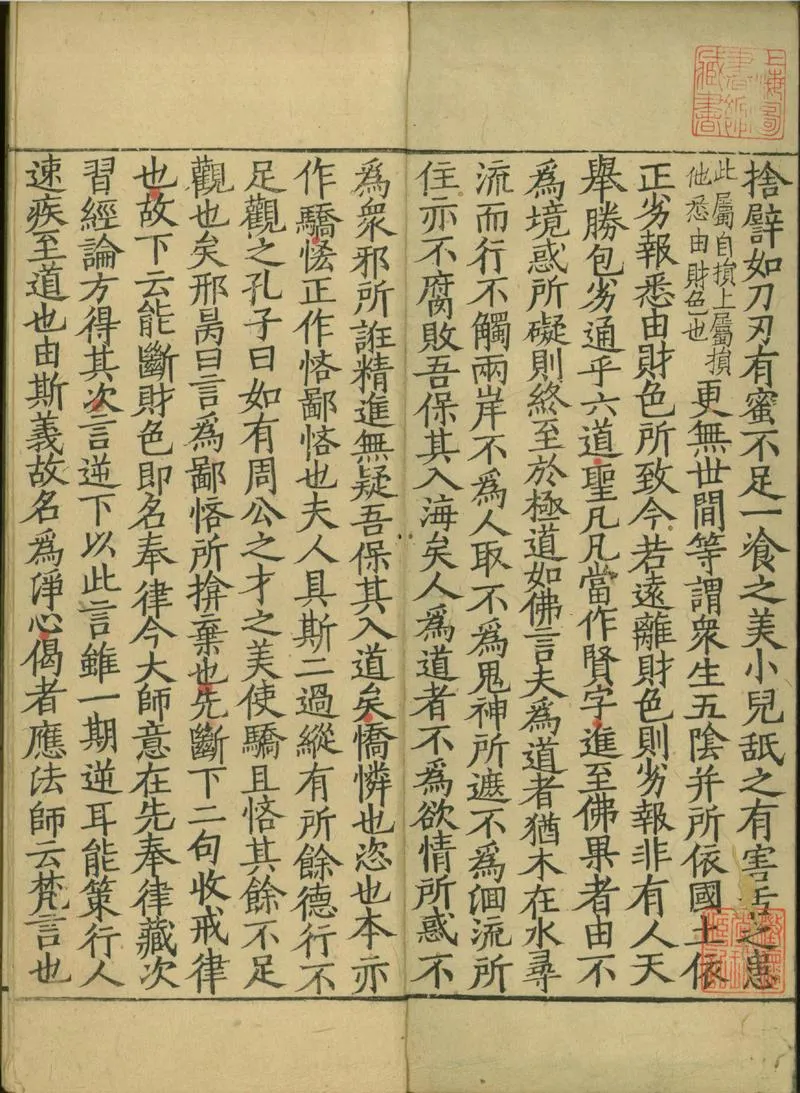 捨譬如刀刃有蜜不足一飡之美小兒舐之有害舌之患
此屬自損上屬損
他悉由財色也
更無世間等謂衆生五陰并所依國土依
正劣報悉由財色所致今若遠離財色則劣報非有人天
舉勝包劣通乎六道聖凡凡當作賢字進至佛果者由不
爲境惑所礙則終至於極道如佛言夫爲道者猶木在水尋
流而行不觸兩岸不爲人取不爲鬼神所遮不爲洄流所
住亦不腐敗吾保其入海矣人爲道者不爲欲情所惑不
爲衆邪所誑精進無疑吾保其入道矣憍憐也恣也本亦
作驕恡正作悋鄙悋也夫人具斯二過縱有所餘德行不
足觀之孔子曰如有周公之才之美使驕且悋其餘不足
觀也矣邢昺曰言爲鄙悋所揜棄也先斷下二句收戒律
也故下云能斷財色即名奉律今大師意在先奉律藏次
習經論方得其次言逆下以此言雖一期逆耳能策行人
速疾至道也由斯義故名爲淨心偈者應法師云梵言也